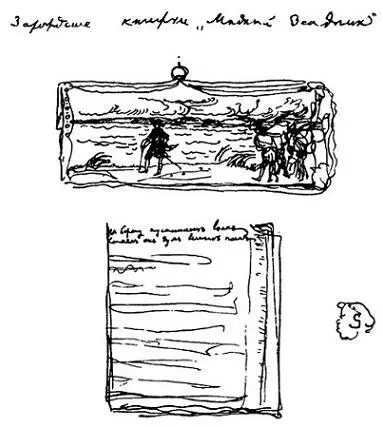 Зарождение книжки „Медный Всадник"
На берегу пустынных волн
Стоял он дум великих полн